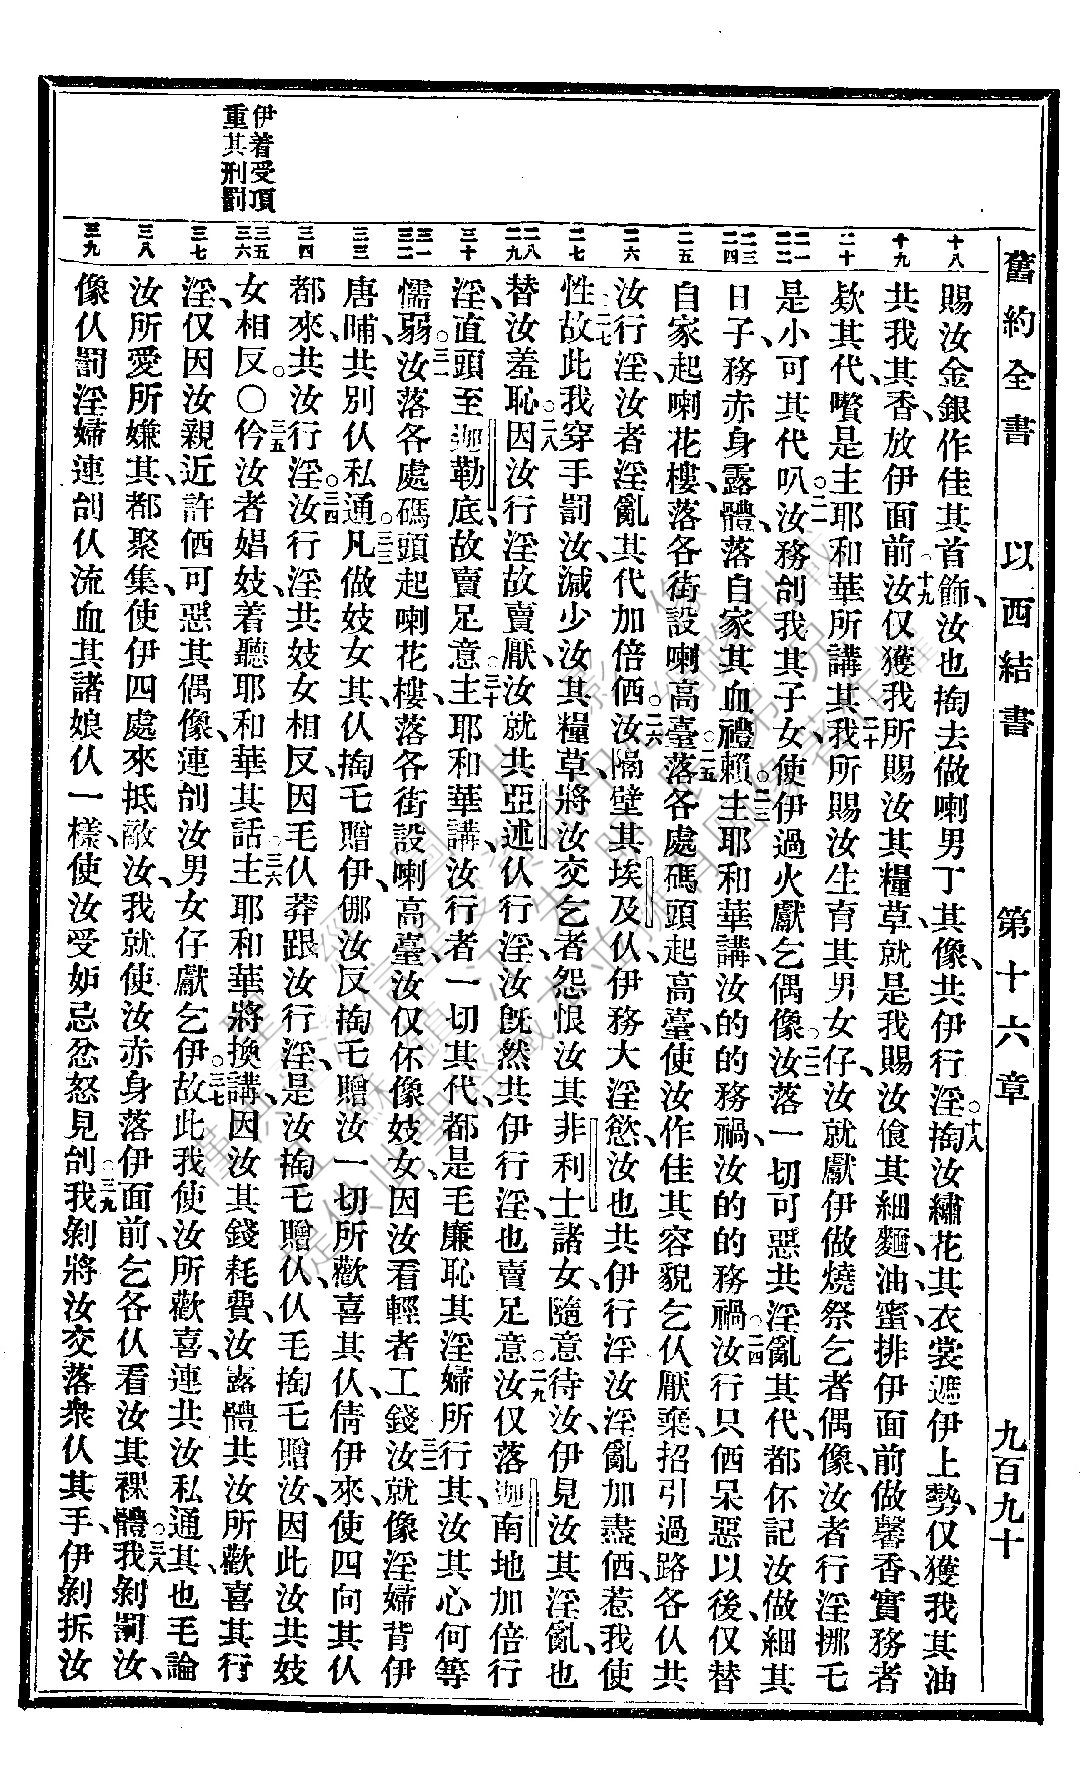 舊約全書 以西結書 第十六章 九百九十
伊着受頂
重其刑罰
十八
十九
二十
二一
二二
二三
二四
二五
二六
二七
二八
二九
三十
三一
三二
三三
三四
三五
三六
三七
三八
三九
賜汝金銀作佳其首飾、汝也掏去做喇男丁其像、共伊行淫。○十八掏汝繡花其衣裳遮伊上勢、仅獲我其油
共我其香、放伊面前。○十九汝仅獲我所賜汝其糧草、就是我賜汝飡其細麵、油、蜜、排伊面前做馨香、實務者
欵其代、嚽是主耶和華所講其。二十我所賜汝生育其男女仔、汝就獻伊做燒祭乞者偶像、汝者行淫挪乇
是小可其代叭。○二一汝務刣我其子女、使伊過火獻乞偶像。○二二汝落一切可惡共淫亂其代、都伓記汝做細其
日子、務赤身露體、落自家其血禮賴。○二三主耶和華講、汝的的務禍、汝的的務禍。○二四汝行只佰呆惡以後、仅替
自家起喇花樓、落各街設喇高臺。○二五落各處碼頭起高臺、使汝作佳其容貌乞仈厭棄、招引過路各仈共
汝行淫、汝者淫亂其代加倍佰。○二六汝隔壁其埃及仈、伊務大淫慾、汝也共伊行淫、汝淫亂加盡佰、惹我使
性。○二七故此我穿手罰汝、減少汝其糧草、將汝交乞者怨恨汝其非利士諸女、隨意待汝、伊見汝其淫亂、也
替汝羞恥。○二八因汝行淫故賣厭、汝就共亞述仈行淫、汝旣然共伊行淫、也賣足意。○二九汝仅落迦南地加倍行
淫、直頭至迦勒底、故賣足意。○三十主耶和華講、汝行者一切其代、都是毛廉恥其淫婦所行其、汝其心何等
懦弱。○三一汝落各處碼頭起喇花樓、落各街設喇高臺、汝仅伓像妓女、因汝看輕者工錢。三二汝就像淫婦背伊
唐晡、共別仈私通。○三三凡做妓女其、仈掏乇贈伊、㑚汝反掏乇贈汝一切所歡喜其仈、倩伊來、使四向其仈
都來、共汝行淫。○三四汝行淫共妓女相反、因毛仈莽跟汝行淫、是汝掏乇贈仈、仈毛掏乇贈汝、因此汝共妓
女相反。○三五仱汝者娼妓、着聽耶和華其話。○三六主耶和華將換講、因汝其錢耗費、汝露體共汝所歡喜其行
淫、仅因汝親近許佰可惡其偶像、連刣汝男女仔獻乞伊。○三七故此我使、汝所歡喜連共汝私通其、也毛論
汝所愛所嫌其、都聚集、使伊四處來抵敵汝、我就使汝赤身落伊面前、乞各仈看汝其裸體。○三八我剝罰汝、
像仈罰淫婦連刣仈流血其諸娘仈一樣、使汝受妒忌忿怒見刣。○三九我剝將汝交落衆仈其手、伊剝拆汝